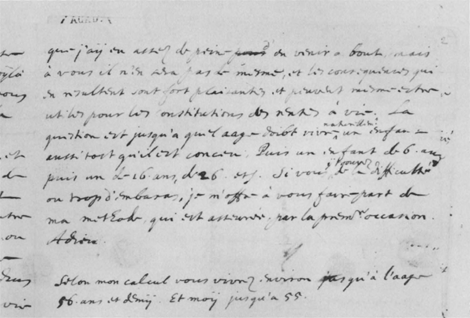 que j'aij eu assez de peine d'en venir a bout, mais
a vous il n'en sera pas de mesme, et les consequences qui
en resultent sont fort plaisantes et peuvent mesme estre
utiles pour les constitutions des rentes à vie. La
question est jusqu'a quel aage doibt vivre naturellem. un enfant
aussitost qu'il est conceu. Puis un enfant de 6. ans
puis un de 16 ans, de 26. etc. Si vous y trouvez de la difficulté
ou trop d'embaras, je m'offre à vous faire part de
ma methode, qui est asseuree, par la prem.re occasion.
Adieu.
Selon mon calcul vous vivrez environ jusqu'à l'aage
56 ans et demij. Et moij jusqu'a 55.